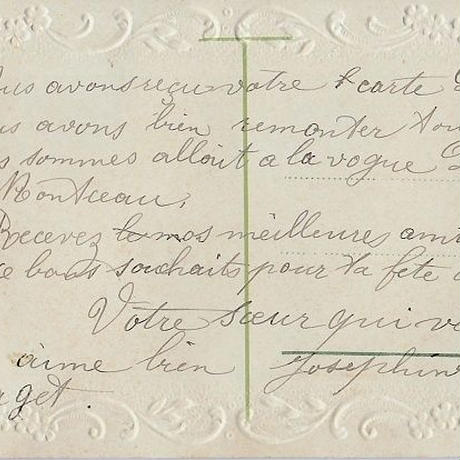 us avons reçu votre carte
us avons bien remonter tou
s sommes alloit a la vogue
Montceau,
Recevez mos meilleures ami
e bons souhaits pour ta fete
Votre sœur qui v
aime bien Josephin
get.